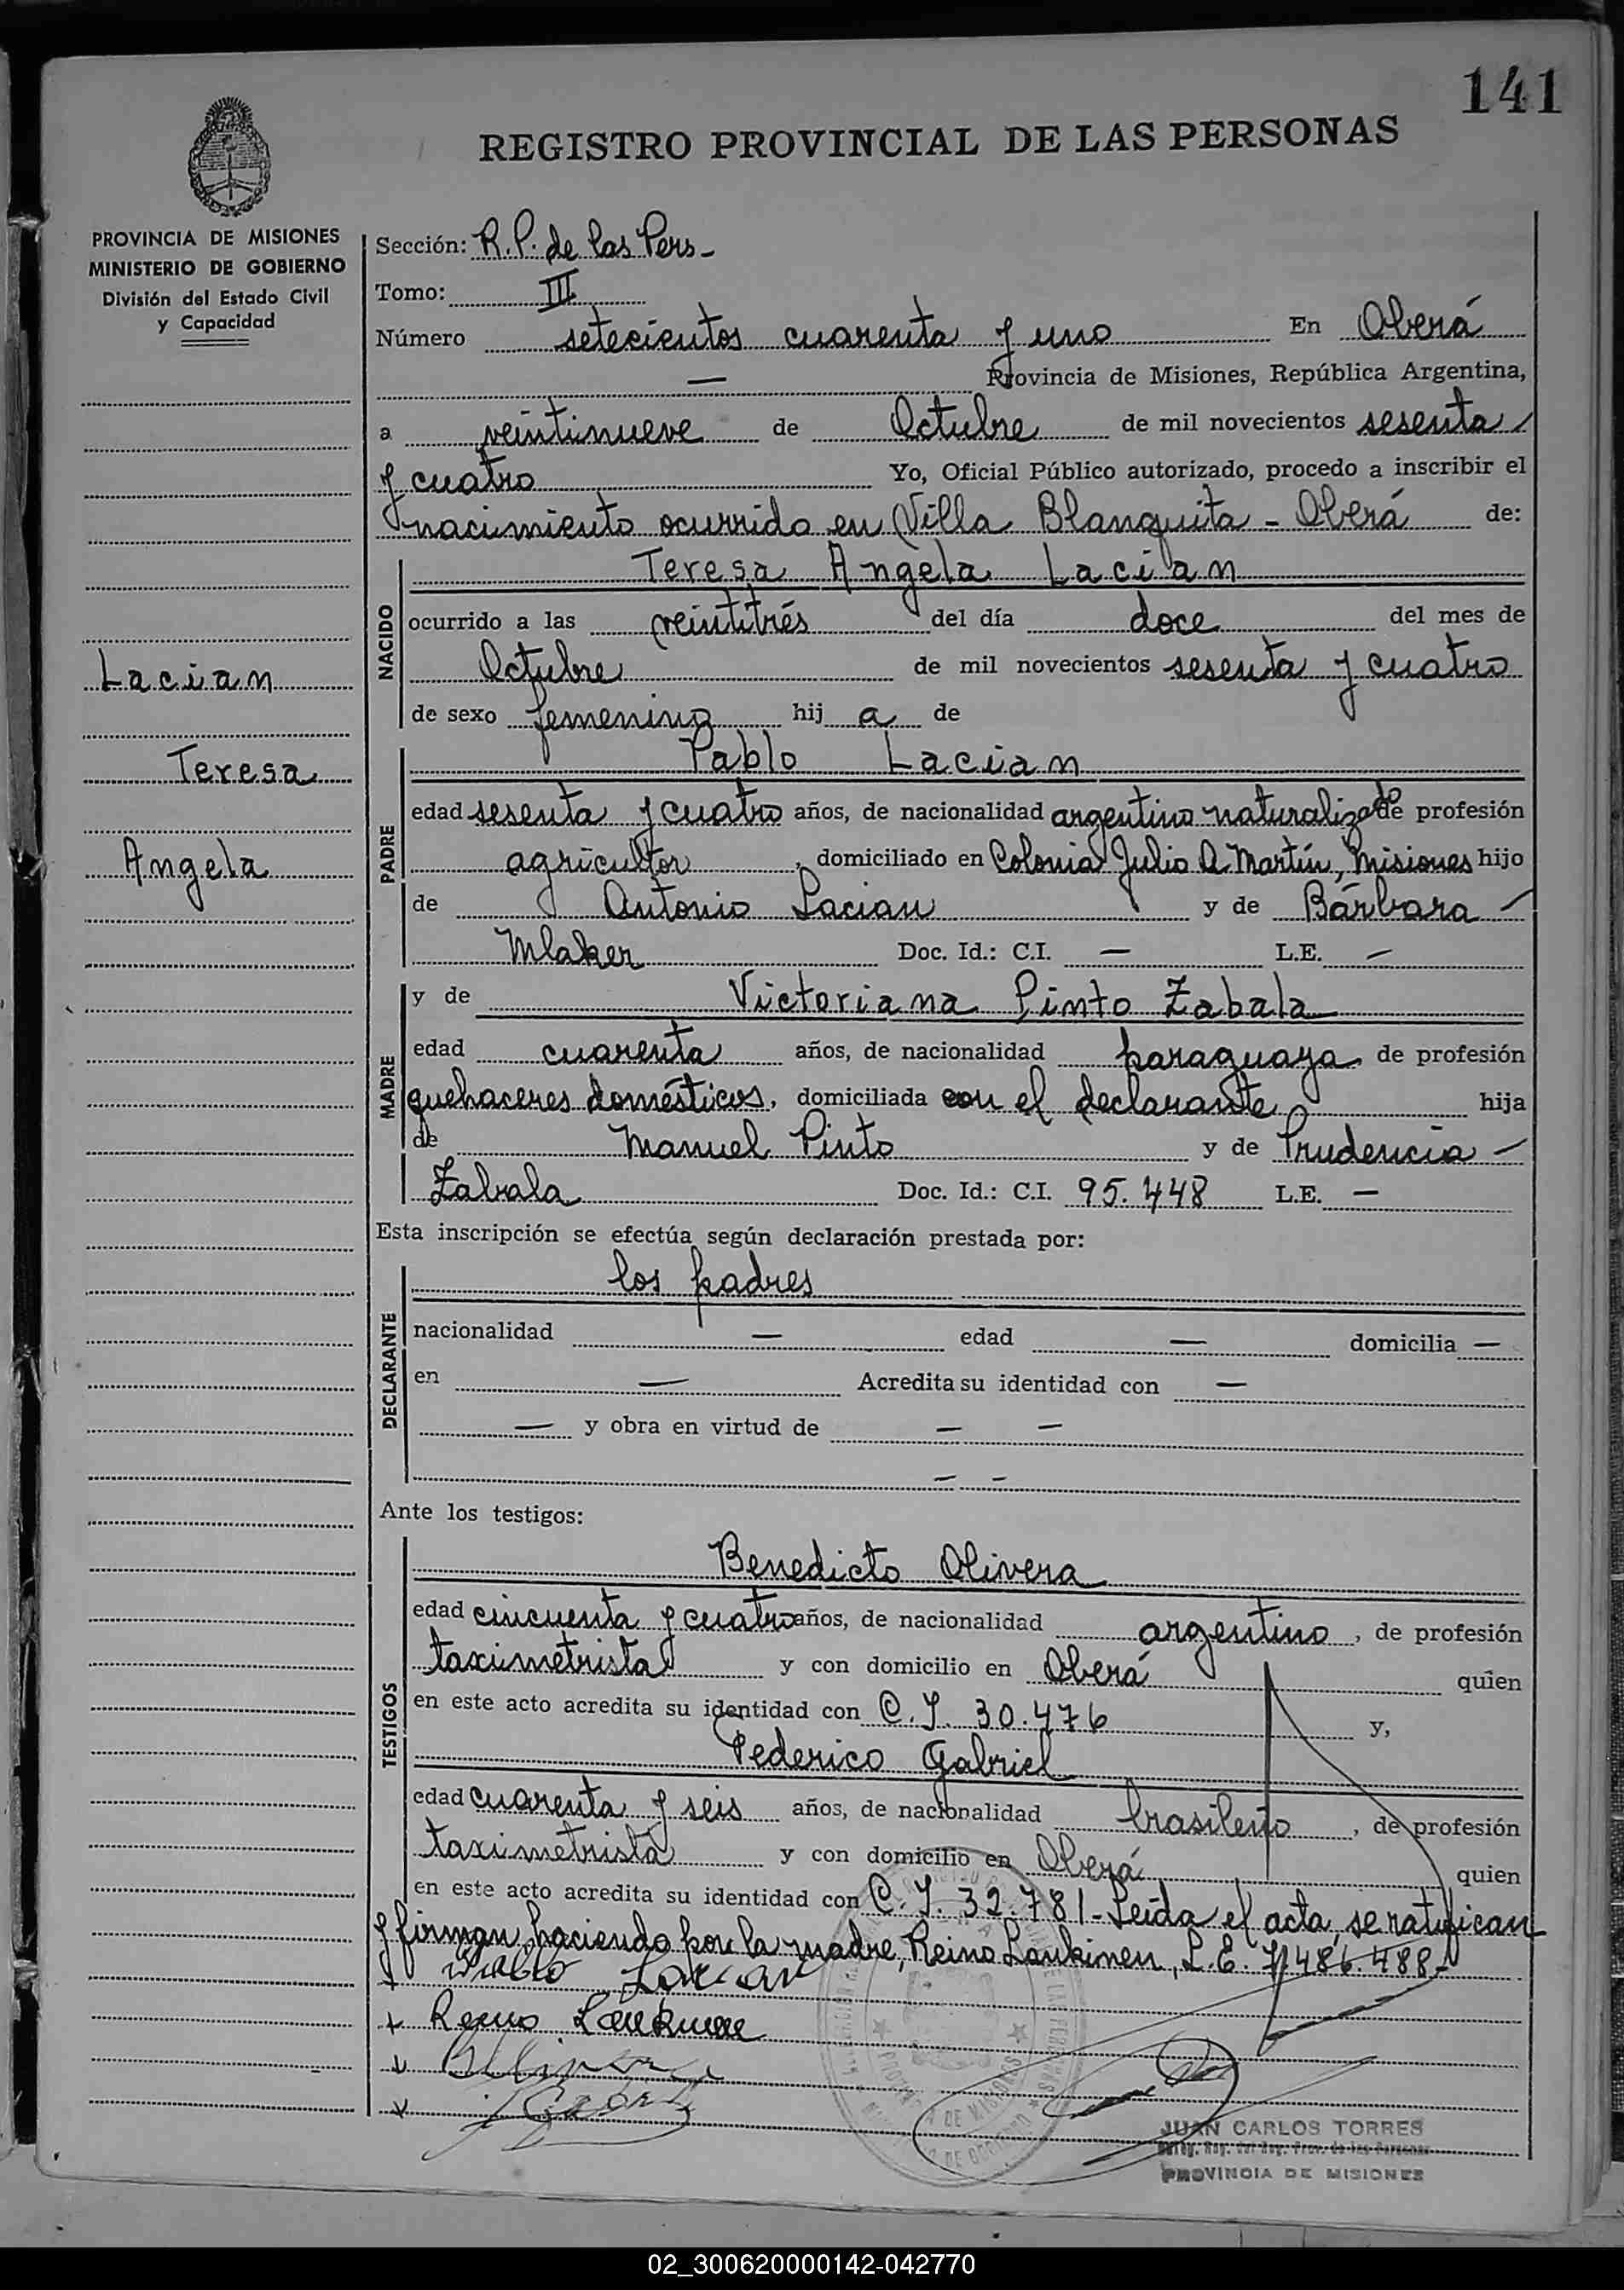 141
REGISTRO PROVINCIAL DE LAS PERSONAS
PROVINCIA DE MISIONES
MINISTERIO DE GOBIERNO
División del Estado Civil
y Capacidad
Lacian
Teresa
Angela
Sección: R.P. de las Pers-
Tomo: III
Número setecientos cuarenta y uno En Oberá
— Provincia de Misiones, República Argentina,
a veintinueve de Octubre de mil novecientos sesenta
y cuatro Yo, Oficial Público autorizado, procedo a inscribir el
nacimiento ocurrido en Villa Blanquita - Oberá de:
NACIDO
Teresa Angela Lacian
ocurrido a las veintitrés del día doce del mes de
Octubre de mil novecientos sesenta y cuatro
de sexo femenino hij a de
PADRE
Pablo Lacian
edad sesenta y cuatro años, de nacionalidad argentino naturalizado de profesión
agricultor, domiciliado en Colonia Julio A Martín, Misiones hijo
de Antonio Lacian y de Bárbara —
Mlaker Doc. Id.: C.I. — L.E. —
MADRE
y de Victoriana Pinto Zabala
edad cuarenta años, de nacionalidad paraguaya de profesión
quehaceres domésticos, domiciliada con el declarante hija
de Manuel Pinto y de Prudencia —
Zabala Doc. Id.: C.I. 95.448 L.E. —
Esta inscripción se efectúa según declaración prestada por:
DECLARANTE
los padres
nacionalidad — edad — domicilia —
en — Acredita su identidad con —
— y obra en virtud de — —
— —
Ante los testigos:
TESTIGOS
Benedicto Olivera
edad cincuenta y cuatro años, de nacionalidad argentino, de profesión
taximetrista y con domicilio en Oberá quien
en este acto acredita su identidad con C.I. 30.476 y,
Federico Gabriel
edad cuarenta y seis años, de nacionalidad brasileño, de profesión
taximetrista y con domicilio en Oberá quien
en este acto acredita su identidad con C.I. 32.781 - Leída el acta, se ratifican
y firman, haciendo por la madre, Reino Laukinen, L.E. 7.486.488-
Pablo Lacian
JUAN CARLOS TORRES
PROVINCIA DE MISIONES
02_300620000142-042770